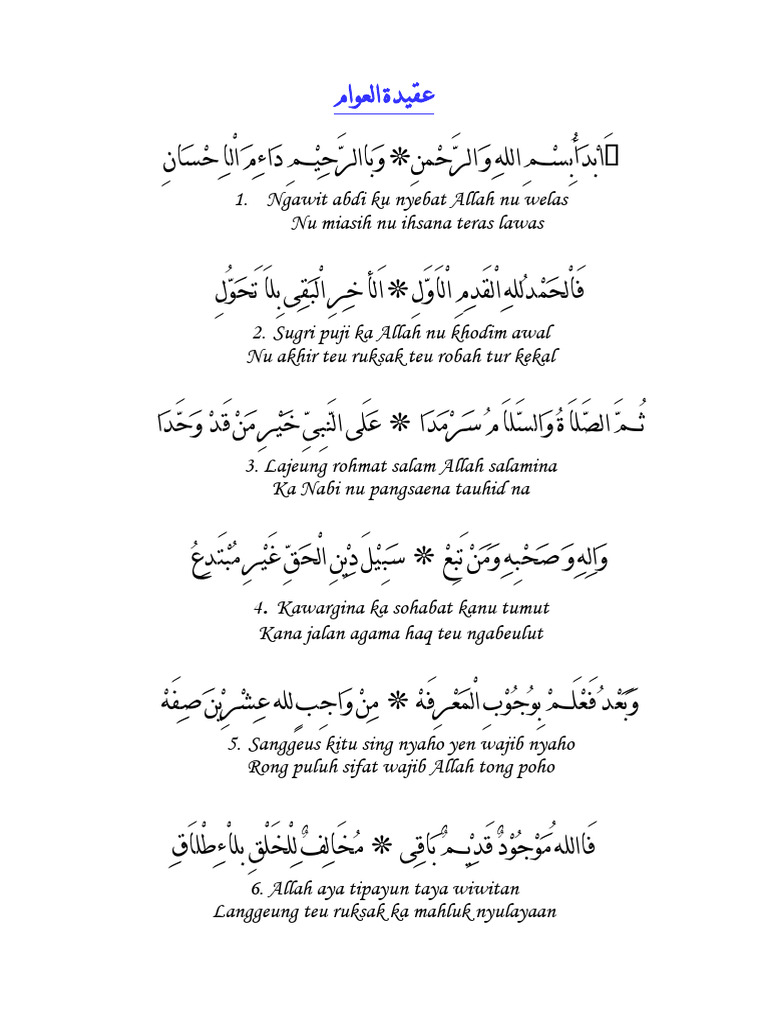 عقيدة العوام
أَبْدَأُبِسْـمِ اللهِ وَالرَّحْمنِ ❋ وَبَاالرَّحِيْـمِ دَاءِمَ الْاِحْسَانِ
1. Ngawit abdi ku nyebat Allah nu welas
Nu miasih nu ihsana teras lawas
فَاْلحَمْدُللهِ الْقَدِمِ الْاَوَّلِ ❋ اَلأَخِرِ الْبَقِى بِلاَ تَحَوُّلِ
2. Sugri puji ka Allah nu khodim awal
Nu akhir teu ruksak teu robah tur kekal
ثُـمَّ الصَّلَا ةُ وَالسَّلَا مُ سَرْمَدَا ❋ عَلَى النَّبِىِّ خَيْـرِ مَنْ قَدْ وَحَّدَا
3. Lajeung rohmat salam Allah salamina
Ka Nabi nu pangsaena tauhid na
وَاِلِهِ وَ صَحْبِهِ وَمَنْ تَبِعْ ❋ سَبِيْلَ دِيْنِ الْحَقِّ غَيْـرِ مُبْتَدِعُ
4. Kawargina ka sohabat kanu tumut
Kana jalan agama haq teu ngabeulut
وَبَعْدُ فَعْلَـمْ بِوُجُوْبِ الْمَعْرِفَهْ ❋ مِنْ وَاجِبٍ لله عِشْـرِيْنَ صِفَهْ
5. Sanggeus kitu sing nyaho yen wajib nyaho
Rong puluh sifat wajib Allah tong poho
فَااللهُ مَوْجُوْدٌ قَدِيْـمٌ بَاقِى ❋ مُخَالِفٌ لِلْخَلْقِ بِلاْءِطْلَاقِ
6. Allah aya tipayun taya wiwitan
Langgeung teu ruksak ka mahluk nyulayaan